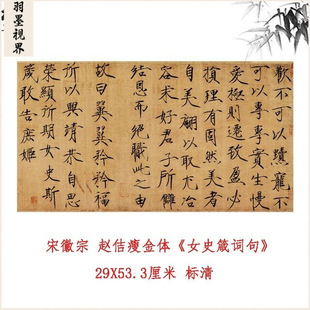 羽墨视界
歡不可以黷寵不
可以專專實生慢
愛極則遷致盈必
損理有固然美者
自美翩以取尤冶
容求好君子所讎
結恩而絕職此之由
故曰翼翼矜矜福
所以興靖恭自思
榮顯所期女史斯
箴敢告庶姬
宋徽宗 赵佶瘦金体《女史箴词句》
29X53.3厘米 标清